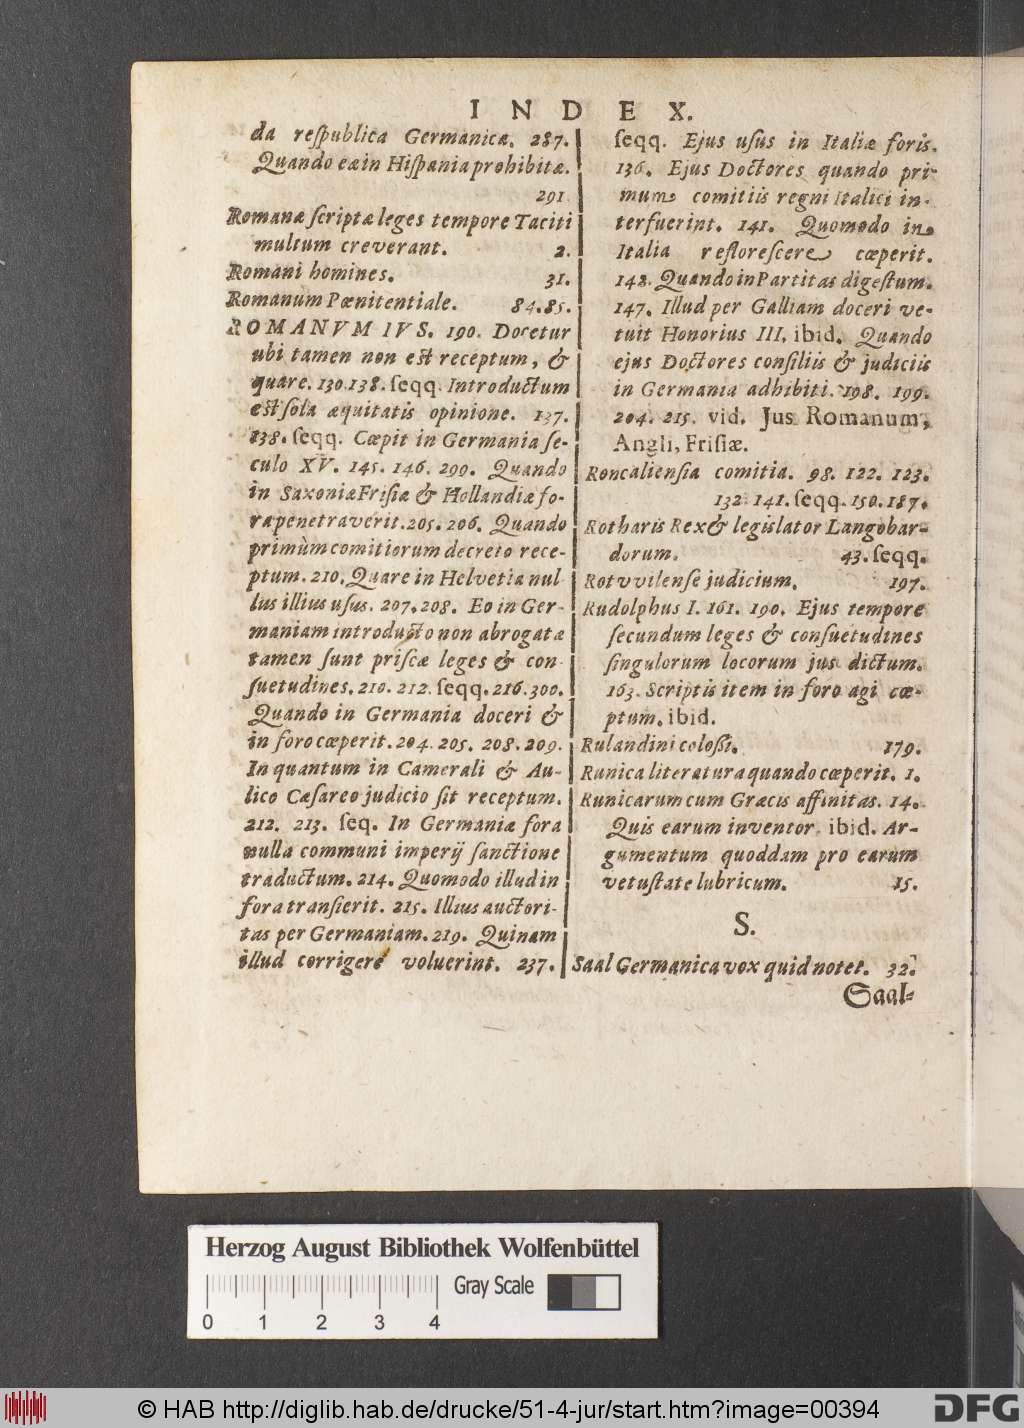 INDEX.
da reſpublica Germanica. 287.
Quando ea in Hiſpania prohibitæ.
291
Romanæ ſcriptæ leges tempore Taciti
multum creverant. 2.
Romani homines. 31.
Romanum Pœnitentiale. 84.85.
ROMANVM IVS. 190. Docetur
ubi tamen non est receptum, &
quare. 130.138. ſeqq. Introductum
est ſola æquitatis opinione. 137.
138. ſeqq. Cœpit in Germania ſe-
culo XV. 145. 146. 299. Quando
in Saxoniæ Friſiæ & Hollandiæ fo-
ra penetraverit. 205. 206. Quando
primùm comitiorum decreto rece-
ptum. 210. Quare in Helvetia nul
lus illius uſus. 207.208. Eo in Ger-
maniam introducto non abrogatæ
tamen ſunt priſcæ leges & con
ſuetudines. 210. 212. ſeqq. 216.300.
Quando in Germania doceri &
in foro cœperit. 204. 205. 208.209.
In quantum in Camerali & Au-
lico Cæſareo judicio ſit receptum.
212. 213. ſeq. In Germaniæ fora
nulla communi imperij ſanctione
traductum. 214. Quomodo illud in
fora tranſierit. 215. Illius auctori-
tas per Germaniam. 219. Quinam
illud corrigere voluerint. 237.
ſeqq. Ejus uſus in Italiæ foris.
136. Ejus Doctores quando pri-
mum comitiis regni Italici in-
terfuerint. 141. Quomodo in
Italia refloreſcere cœperit.
142. Quando in Partitas digeſtum.
147. Illud per Galliam doceri ve-
tuit Honorius III. ibid. Quando
ejus Doctores conſiliis & judiciis
in Germania adhibiti. 198. 199.
204. 215. vid. Jus Romanum,
Angli, Friſiæ.
Roncalienſia comitia. 98. 122. 123.
132. 141. ſeqq. 150. 187.
Rotharis Rex & legislator Langobar-
dorum. 43. ſeqq.
Rotvvilenſe judicium. 197.
Rudolphus I. 161. 190. Ejus tempore
ſecundum leges & conſuetudines
ſingulorum locorum jus dictum.
163. Scriptis item in foro agi cœ-
ptum. ibid.
Rulandini coloßi. 179.
Runica literatura quando cœperit. 1.
Runicarum cum Græcis affinitas. 14.
Quis earum inventor. ibid. Ar-
gumentum quoddam pro earum
vetuſtate lubricum. 15.
S.
Saal Germanica vox quid notet. 32.
Saal-
Herzog August Bibliothek Wolfenbüttel
Gray Scale
0 1 2 3 4
© HAB http://diglib.hab.de/drucke/51-4-jur/start.htm?image=00394
DFG